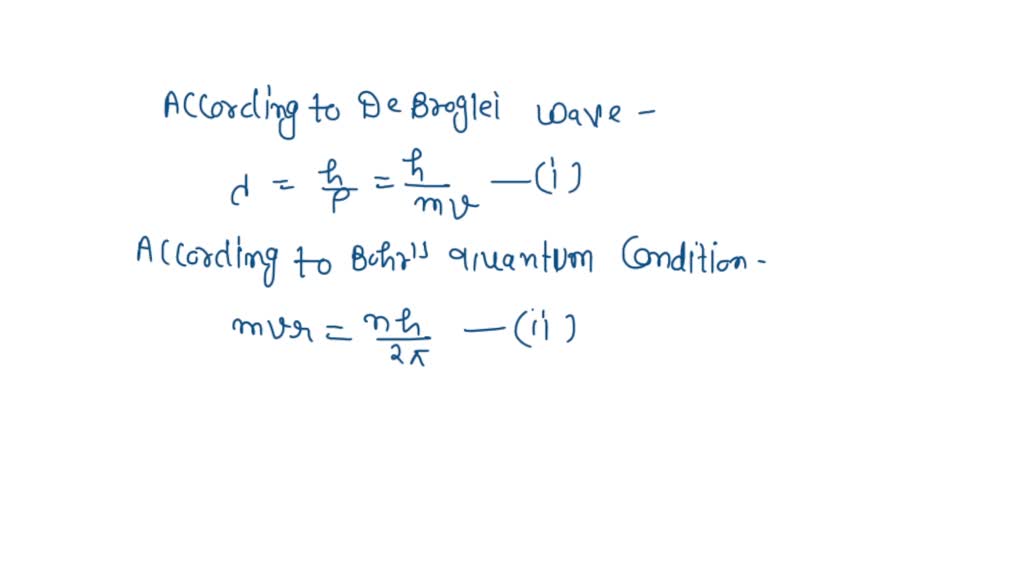 According to De Broglei wave -
d = h/p = h/mv —(i)
According to Bohr's quantum Condition.
mvr = nh/2π —(ii)